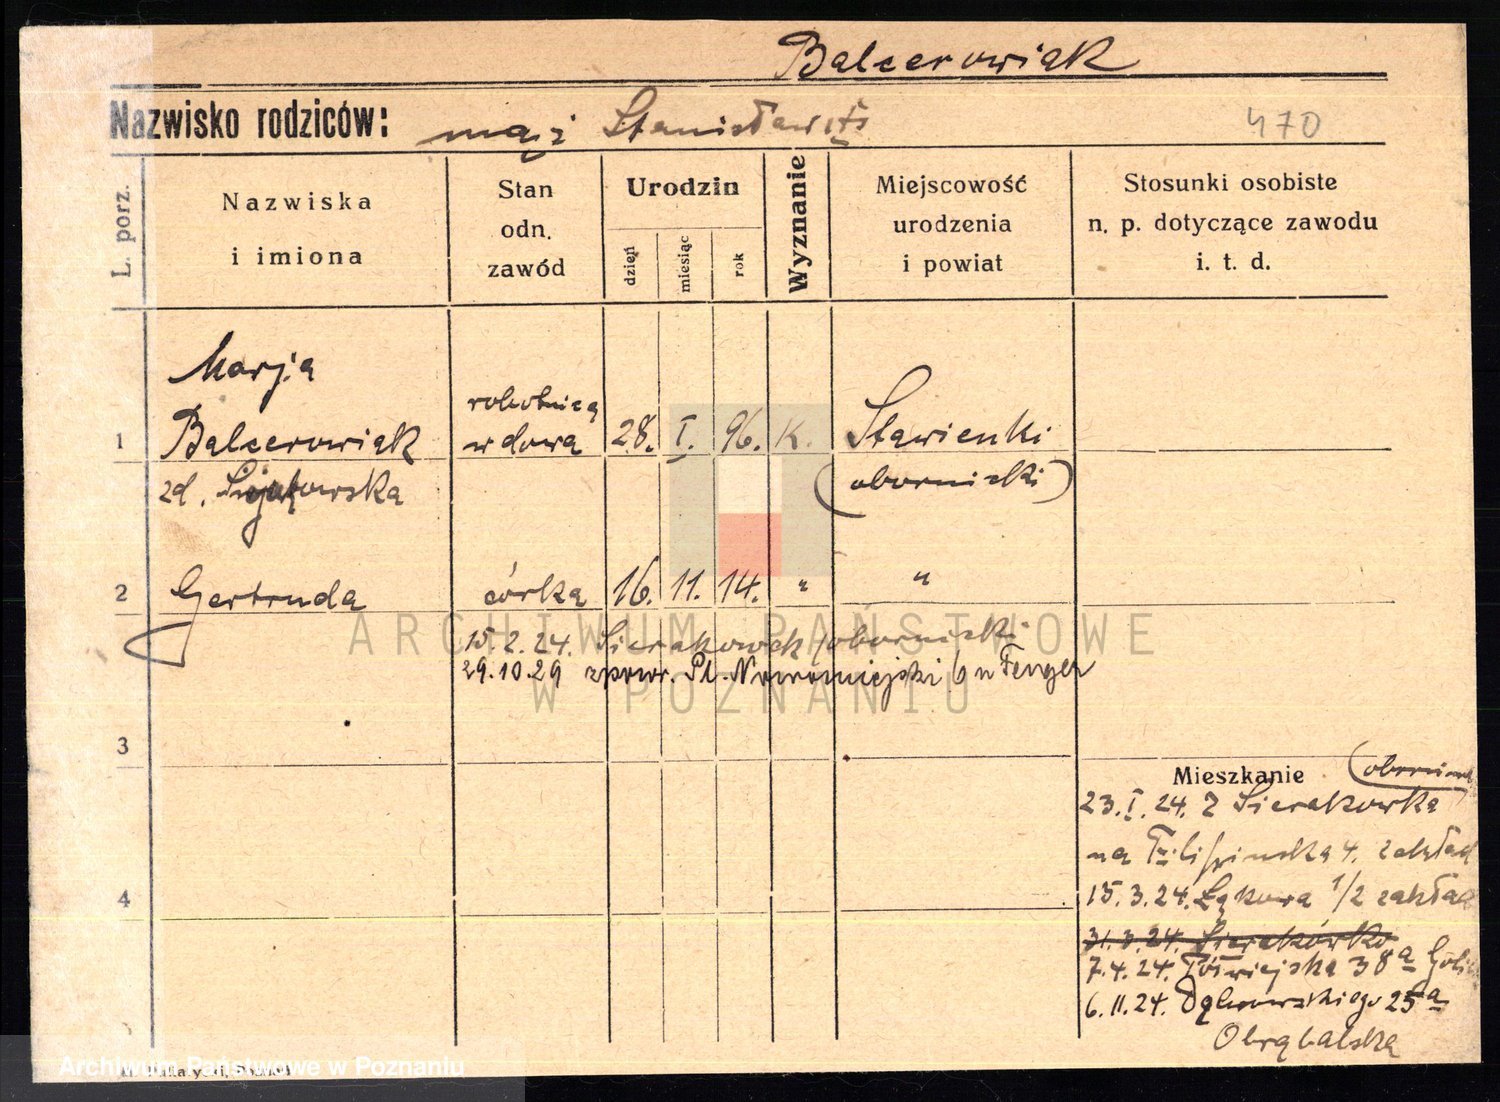 Balcerowiak
Nazwisko rodziców: mąż Stanisław
470
L. porz.
Nazwiska
i imiona
Stan
odn.
zawód
Urodzin
dzień
miesiąc
rok
Wyznanie
Miejscowość
urodzenia
i powiat
Stosunki osobiste
n. p. dotyczące zawodu
i. t. d.
Marja
1 Balcerowiak
zd.
robotnica
wdowa
28. I. 96. K.
Stawienki
(obornicki)
2 Gertruda córka 16. 11. 14. " "
15.2.24. Sierakowek /obornicki
29.10.29 zpowr. Pl. Nowomiejski 6 u Fenger
3
4
Mieszkanie
23.I.24. z Sierakowka
na 4. zakład
15.3.24. Łąkowa 1/2 zakład
31.3.24. Sierakówko
7.4.24. Półwiejska 38a
6.11.24. Dąbrowskiego 25a
Obrąbalska
ARCHIWUM PAŃSTWOWE
W POZNANIU
Archiwum Państwowe w Poznaniu